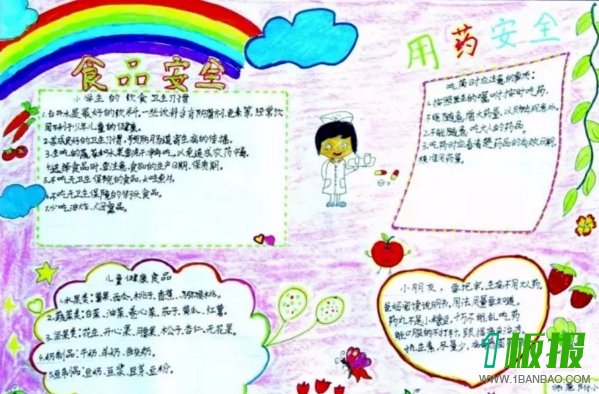 食品安全
小学生的饮食卫生习惯
1.白开水是最好的饮料,一些饮料含有防腐剂,色素等,经常饮
用不利于少年儿童的健康。
2.养成良好的卫生习惯,预防肠道寄生病的传播。
3.生吃的蔬菜和水果要洗干净
4.选择食品时,要注意食品的生产日期、保质期。
5.不吃无卫生保障的食品
6.不吃无卫生保障的街头食品。
7.少吃油炸、食品。
用药安全
吃药时应注意的事项:
1.按照医生的嘱咐按时吃药,
2.不能随意
3.不能随意吃大人的药品。
4.吃药时应看清楚药品的有效日期,
慎准用药量。
儿童健康食品
1.水果类:苹果、
2.蔬菜类:白菜、油菜、卷心菜、茄子、黄瓜、红薯。
3.坚果类:花生、开心果、腰果、松子、杏仁、无花果。
4.奶制品:牛奶、羊奶、
5.豆制品:豆奶、豆浆、豆芽、豆粉。
小朋友,要记牢,生病不用大人药,
爸妈阅读说明书,用法用量要知道。
药丸不是小糖豆,千万不能乱吃药
能口服的不打针,
板报
WWW.1BANBAO.COM